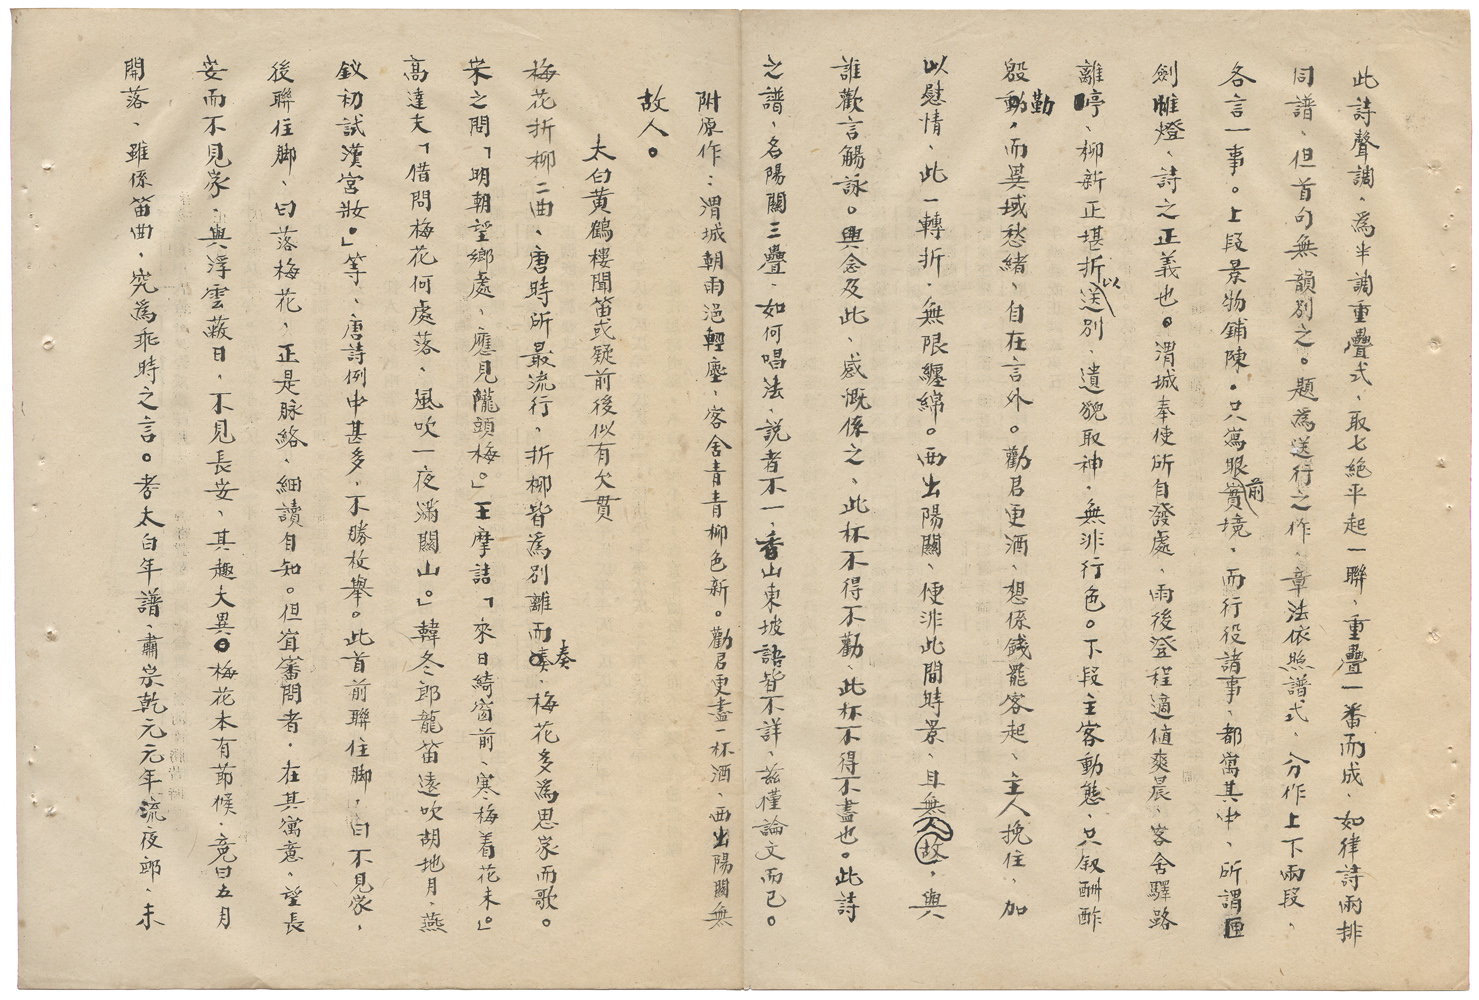 此詩聲調、為半調重疊式、取七絕平起一聯、重疊一番而成、如律詩兩排
同譜、但首句無韻別之。題為送行之作、章法依照譜式、分作上下兩段、
各言一事。上段景物鋪陳。只寫眼前實境、而行役諸事、都寓其中、所謂匣
劍帷燈、詩之正義也。渭城奉使所自發處、雨後登程適值爽晨、客舍驛路
離停、柳新正堪折以送別、遺貌取神、無非行色。下段主客動態、只叙酬酢
殷勤、而異域愁緒、自在言外。勸君更酒、想係餞罷客起、主人挽住、加
以慰情、此一轉折、無限纏綿。西出陽關、便非此間時景、且無故人、與
誰歡言觴詠。興念及此、感慨係之、此杯不得不勸、此杯不得不盡也。此詩
之譜、名陽關三疊、如何唱法、說者不一、香山東坡語皆不詳、茲僅論文而已。
附原作：渭城朝雨浥輕塵、客舍青青柳色新。勸君更盡一杯酒、西出陽關無
故人。
太白黃鶴樓聞笛或疑前後似有欠貫
梅花折柳二曲、唐時所最流行、折柳皆為別離而奏、梅花多為思家而歌。
宋之問「明朝望鄉處、應見隴頭梅。」王摩詰「來日綺窗前、寒梅着花未。」
高達夫「借問梅花何處落、風吹一夜滿關山。」韓冬郎龍笛遠吹胡地月、燕
釵初試漢宮妝。」等、唐詩例中甚多、不勝枚舉。此首前聯住脚、曰不見家、
後聯住脚、曰落梅花、正是脉絡、細讀自知。但宜審問者、在其寓意、望長
安而不見家、與浮雲蔽日、不見長安、其趣大異。梅花本有節候、竟曰五月
開落、雖係笛曲、究為乖時之言。考太白年譜、肅宗乾元元年流夜郎、未